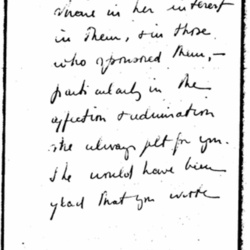 share in her interest
in them, & in those
who sponsored them, –
particularly in the
affection & admiration
she always felt for you.
She would have been
glad that you wrote